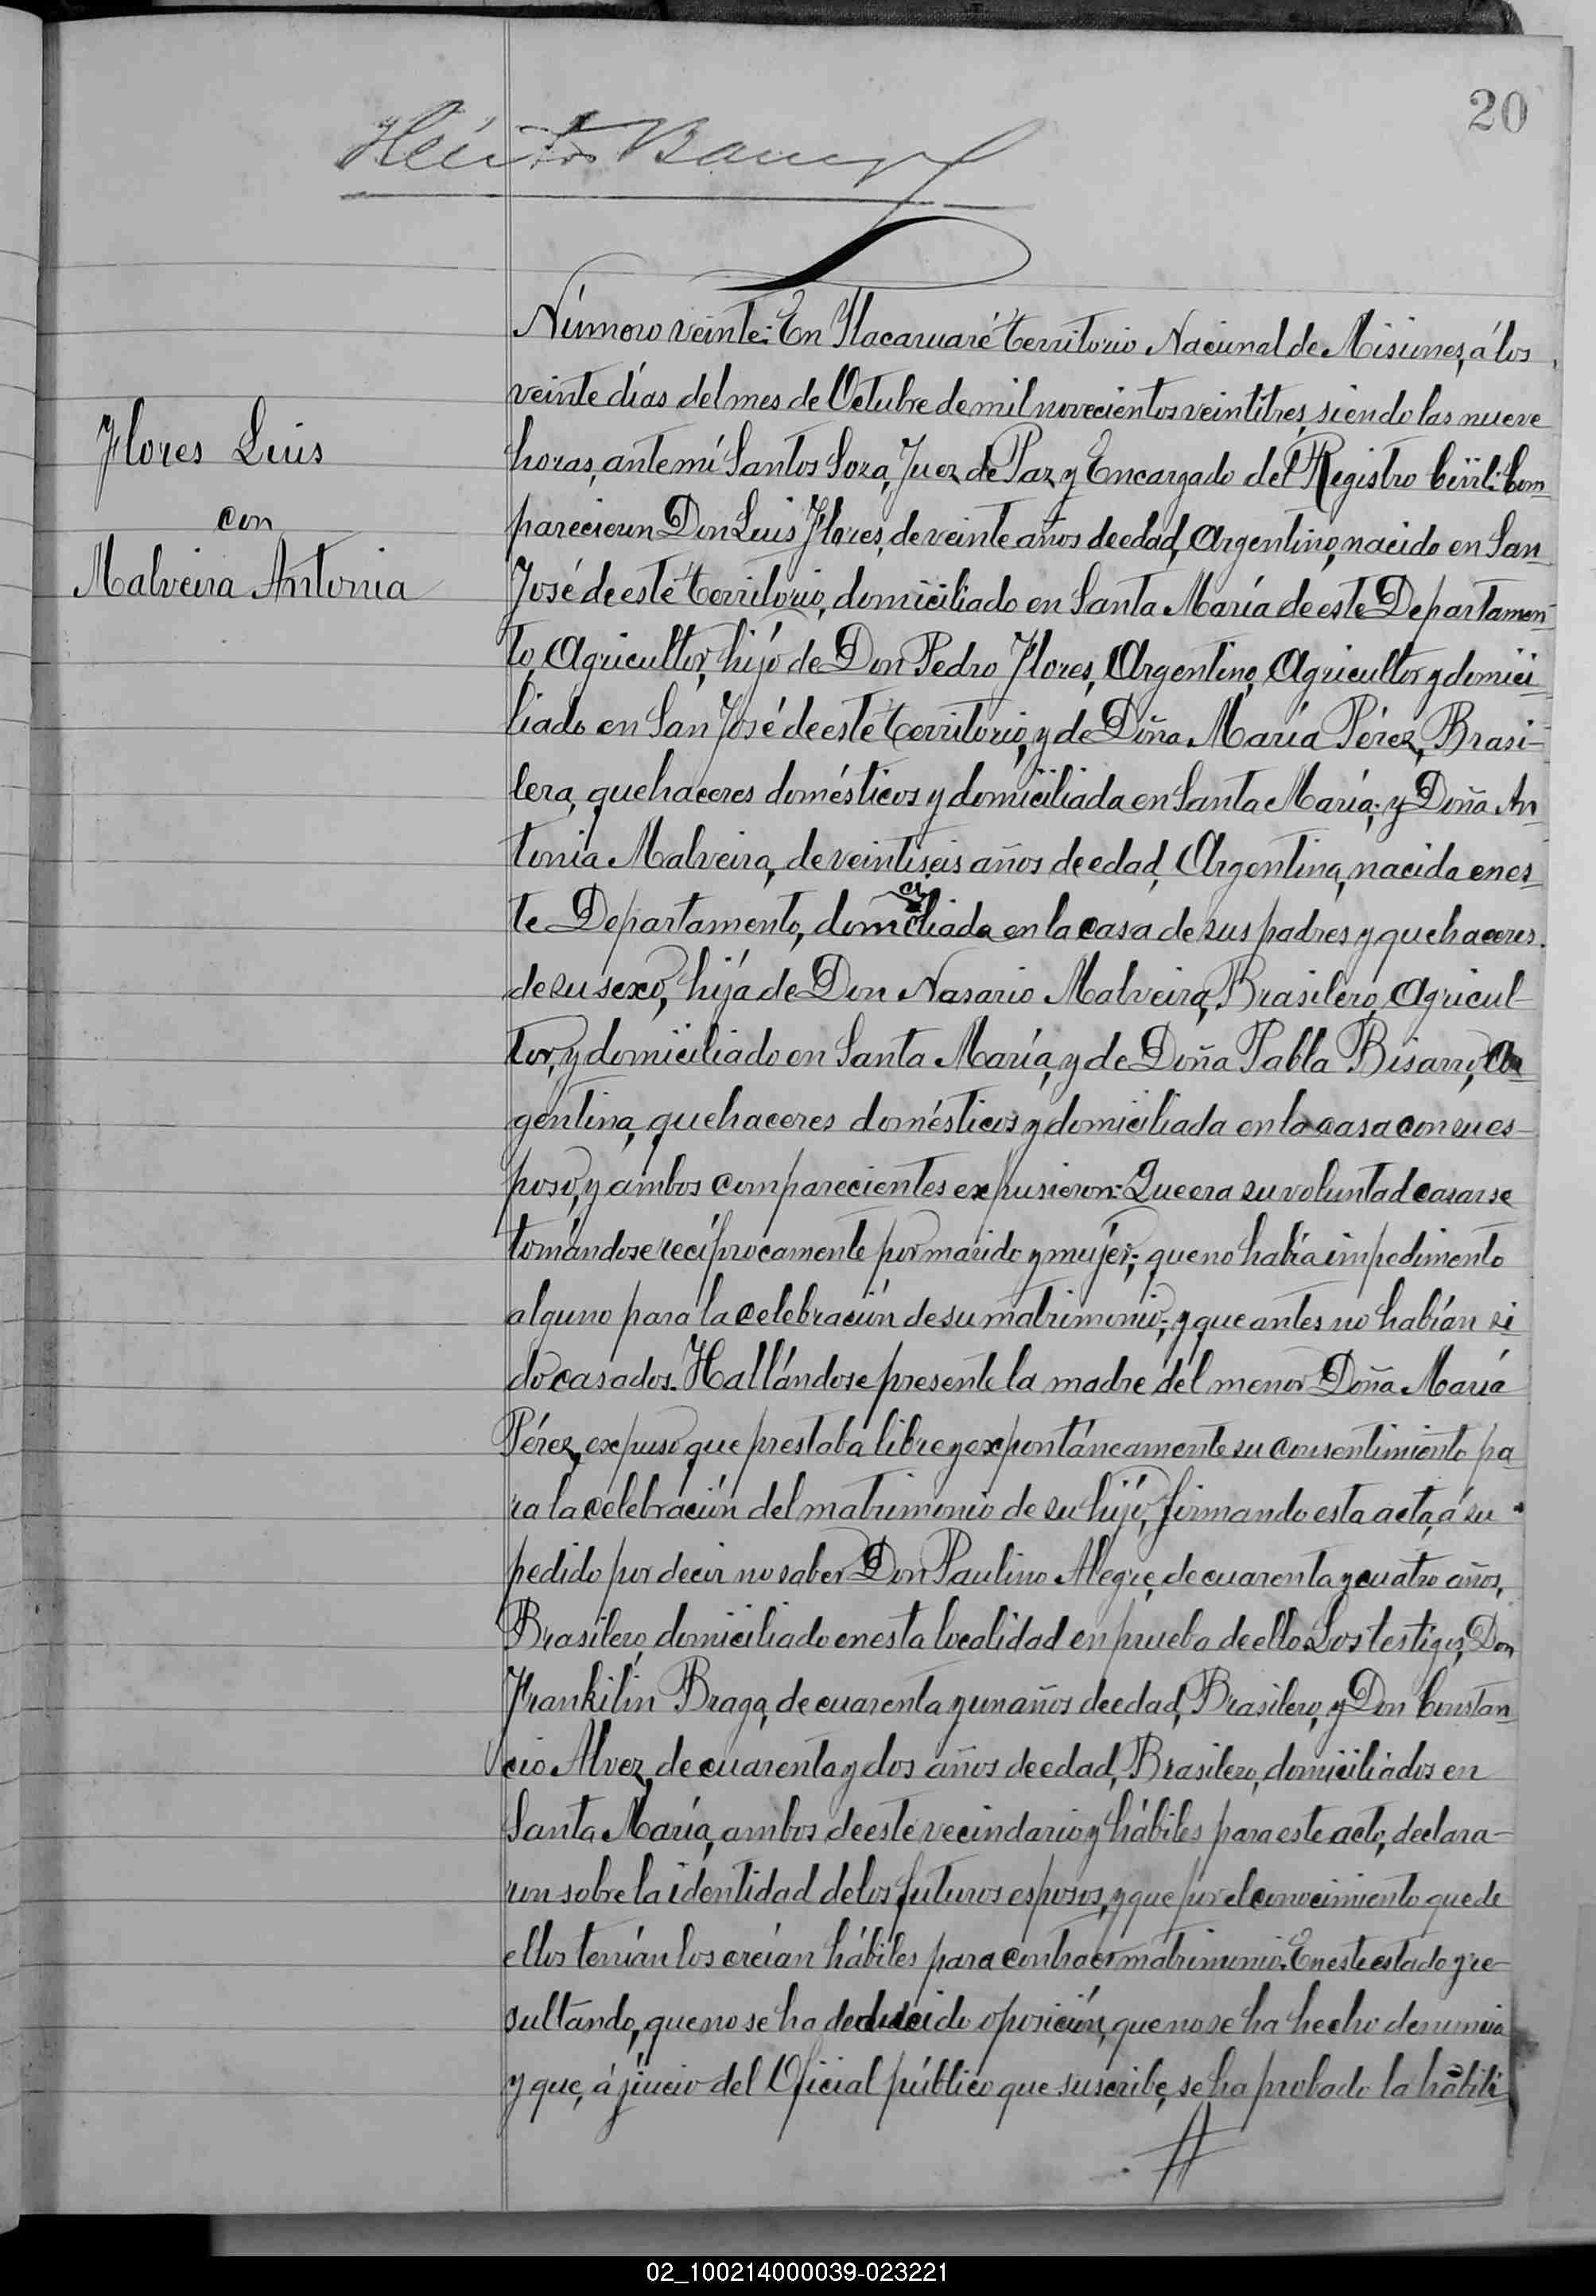 20
Héctor
Número veinte: En Itacaruaré territorio Nacional de Misiones, á los
veinte días del mes de Octubre de mil novecientos veintitres, siendo las nueve
horas, ante mí Santos Soza, Juez de Paz y Encargado del Registro Civil: Com
Flores Luis
parecieron Don Luis Flores, de veinte años de edad, Argentino, nacido en San
con
José de este territorio, domiciliado en Santa María de este Departamen
Malveira Antonia
to, Agricultor, hijo de Don Pedro Flores, Argentino, Agricultor y domici
liado en San José de este territorio, y de Doña María Pérez, Brasi-
lera, quehaceres domésticos y domiciliada en Santa María; y Doña An
tonia Malveira, de veintiseis años de edad, Argentina, nacida en es
te Departamento, domiciliada en la casa de sus padres y quehaceres
de su sexo, hija de Don Nasario Malveira, Brasilero, Agricul-
tor, y domiciliado en Santa María, y de Doña Pabla Bisarro, Ar
gentina, quehaceres domésticos y domiciliada en la casa con su es-
poso, y ambos comparecientes expusieron: Que era su voluntad casarse
tomándose recíprocamente por marido y mujer; que no había impedimento
alguno para la celebración de su matrimonio; y que antes no habían si
do casados. Hallándose presente la madre del menor Doña María
Pérez, expuso que prestaba libre y expontáneamente su consentimiento pa
ra la celebración del matrimonio de su hijo, firmando esta acta, á su
pedido por decir no saber Don Paulino Alegre, de cuarenta y cuatro años,
Brasilero, domiciliado en esta localidad en prueba de ello. Los testigos, Don
Frankilin Braga, de cuarenta y un años de edad, Brasilero, y Don Constan
cio Alvez, de cuarenta y dos años de edad, Brasilero, domiciliados en
Santa María, ambos de este vecindario y hábiles para este acto, declara-
ron sobre la identidad de los futuros esposos, y que por el conocimiento que de
ellos tenían los creían hábiles para contraer matrimonio. En este estado y re-
sultando, que no se ha deducido oposición, que no se ha hecho denuncia
y que, á juicio del Oficial público que suscribe, se ha probado la habili
02_100214000039-023221